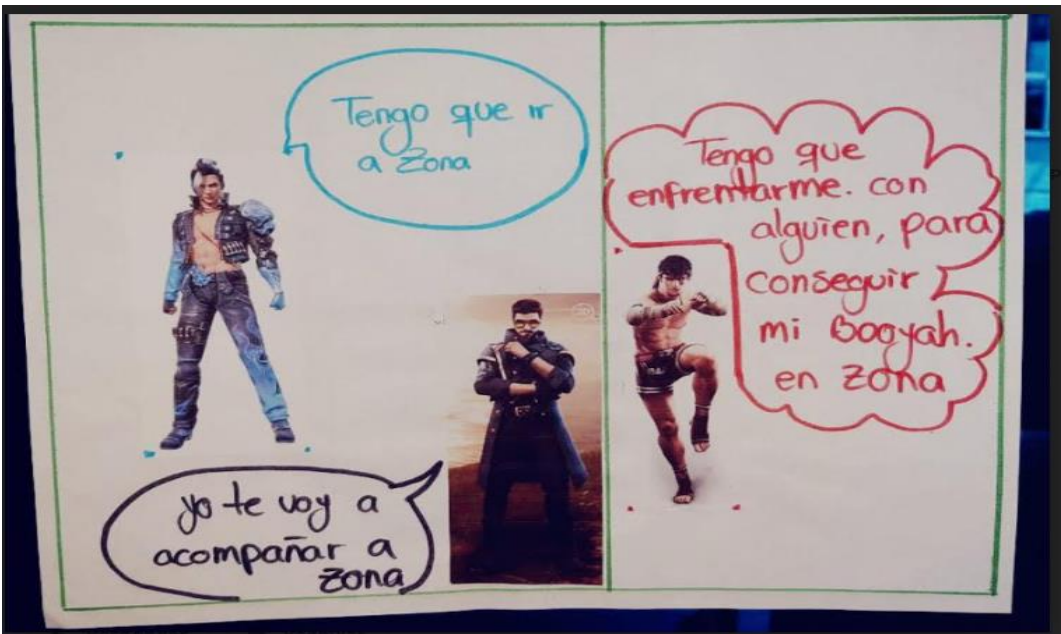 Tengo que ir
a Zona
yo te voy a
acompañar a
zona
Tengo que
enfrentarme. con
alguien, para
conseguir
mi Booyah.
en zona